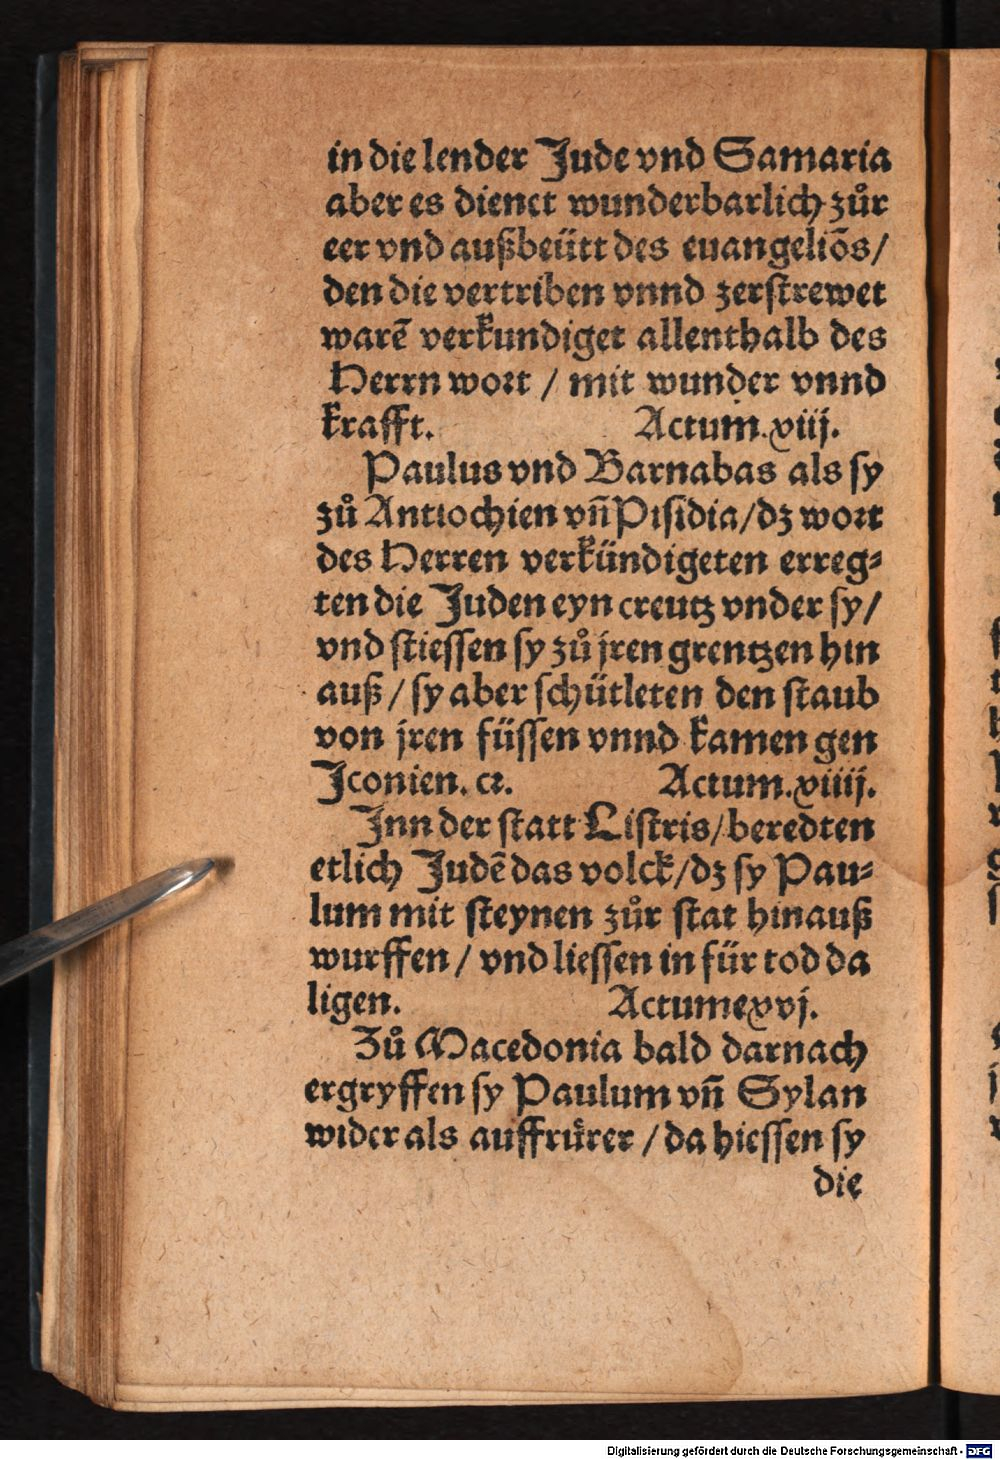 in die lender Jude vnd Samaria
aber es dienet wunderbarlich zůr
eer vnd außbeütt des euangeliōs/
den die vertriben vnnd zerstrewet
warē verkundiget allenthalb des
Herrn wort / mit wunder vnnd
krafft. Actum.viij.
Paulus vnd Barnabas als sy
zů Antiochien vn̄ Pisidia/dz wort
des Herren verkündigeten erreg⸗
ten die Juden eyn creutz vnder sy/
vnd stiessen sy zů jren grentzen hin
auß / sy aber schütleten den staub
von jren füssen vnnd kamen gen
Iconien. ꝛc. Actum.xiiij.
Inn der statt Listris/beredten
etlich Judē das volck/dz sy Pau⸗
lum mit steynen zůr stat hinauß
wurffen / vnd liessen in für tod da
ligen. Actumexvj.
Zů Macedonia bald darnach
ergryffen sy Paulum vn̄ Sylan
wider als auffrůrer / da hiessen sy
die
Digitalisierung gefördert durch die Deutsche Forschungsgemeinschaft - DFG